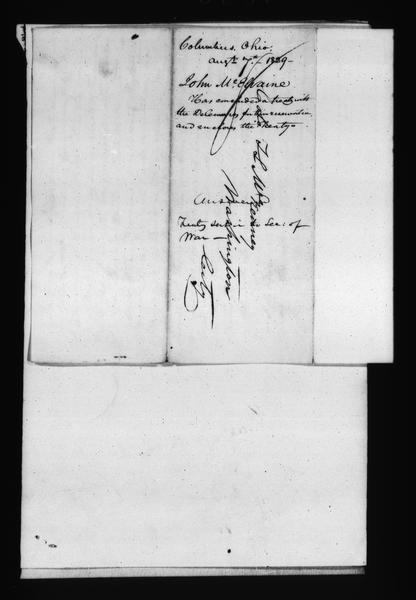 Columbus, Ohio,
Augt. 7th. 1829-
John McElvaine
Has concluded a treaty with
the Delawares for their reservation,
and encloses the Treaty-
Answered
Treaty sent to the Sec: of
War-
Col. Th. L. McKenney
Washington
City